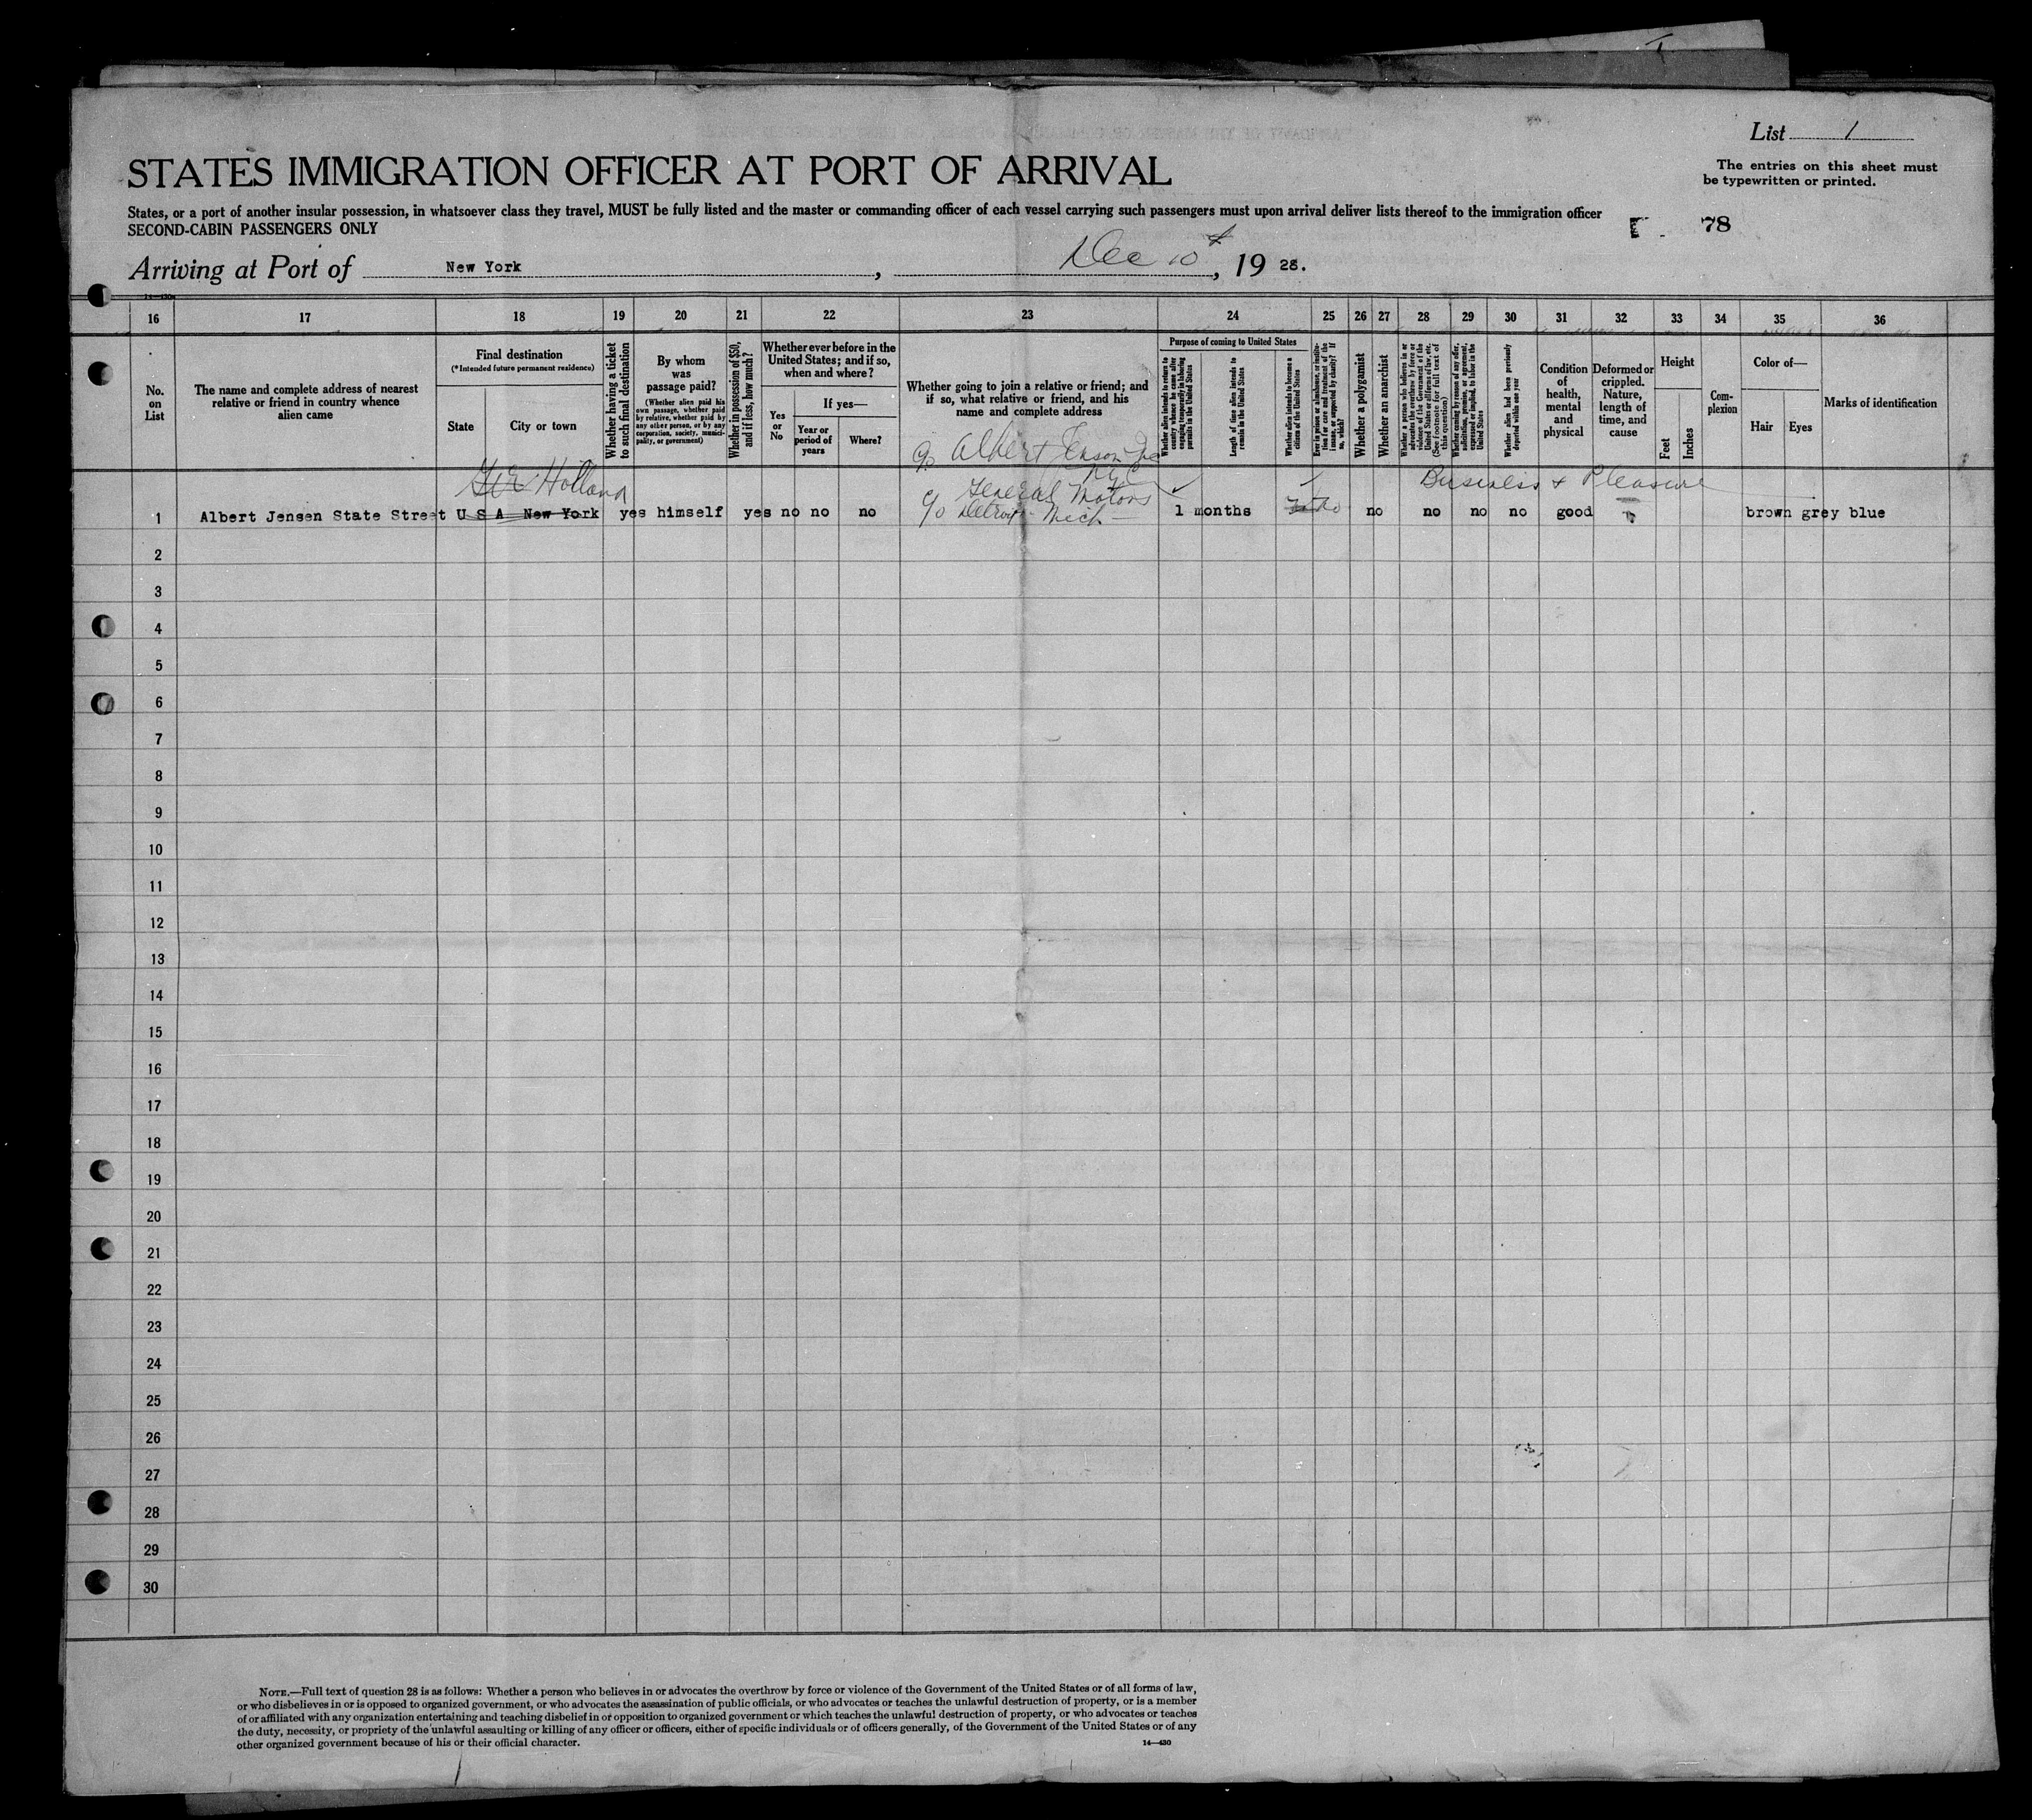 List 1
STATES IMMIGRATION OFFICER AT PORT OF ARRIVAL
The entries on this sheet must
be typewritten or printed.
States, or a port of another insular possession, in whatsoever class they travel, MUST be fully listed and the master or commanding officer of each vessel carrying such passengers must upon arrival deliver lists thereof to the immigration officer
SECOND-CABIN PASSENGERS ONLY
78
Arriving at Port of New York, Dec 10, 19 28.
14—430
16 17 18 19 20 21 22 23 24 25 26 27 28 29 30 31 32 33 34 35 36
No. on List
The name and complete address of nearest relative or friend in country whence alien came
Final destination
(*Intended future permanent residence)
State
City or town
Whether having a ticket to such final destination
By whom was passage paid?
(Whether alien paid his own passage, whether paid by relative, whether paid by any other person, or by any corporation, society, municipality, or government)
Whether in possession of $50, and if less, how much?
Whether ever before in the United States; and if so, when and where?
Yes or No
If yes—
Year or period of years
Where?
Whether going to join a relative or friend; and if so, what relative or friend, and his name and complete address
Purpose of coming to United States
Whether alien intends to return to country whence he came after engaging temporarily in laboring pursuits in the United States
Length of time alien intends to remain in the United States
Whether alien intends to become a citizen of the United States
Ever in prison or almshouse, or institution for care and treatment of the insane, or supported by charity? If so, which?
Whether a polygamist
Whether an anarchist
Whether a person who believes in or advocates the overthrow by force or violence of the Government of the United States or all forms of law, etc. (See footnote for full text of this question)
Whether coming by reason of any offer, solicitation, promise, or agreement, expressed or implied, to labor in the United States
Whether alien had been previously deported within one year
Condition of health, mental and physical
Deformed or crippled. Nature, length of time, and cause
Height
Feet
Inches
Complexion
Color of—
Hair
Eyes
Marks of identification
c/o Albert Jenson
N.Y.C.
Holland
c/o General Motors
Business & Pleasure
1 Albert Jensen State Street U S A New York yes himself yes no no no Detroit Mich 1 months no no no no no good brown grey blue
2
3
4
5
6
7
8
9
10
11
12
13
14
15
16
17
18
19
20
21
22
23
24
25
26
27
28
29
30
NOTE.—Full text of question 28 is as follows: Whether a person who believes in or advocates the overthrow by force or violence of the Government of the United States or of all forms of law,
or who disbelieves in or is opposed to organized government, or who advocates the assassination of public officials, or who advocates or teaches the unlawful destruction of property, or is a member
of or affiliated with any organization entertaining and teaching disbelief in or opposition to organized government or which teaches the unlawful destruction of property, or who advocates or teaches
the duty, necessity, or propriety of the unlawful assaulting or killing of any officer or officers, either of specific individuals or of officers generally, of the Government of the United States or of any
other organized government because of his or their official character.
14—430